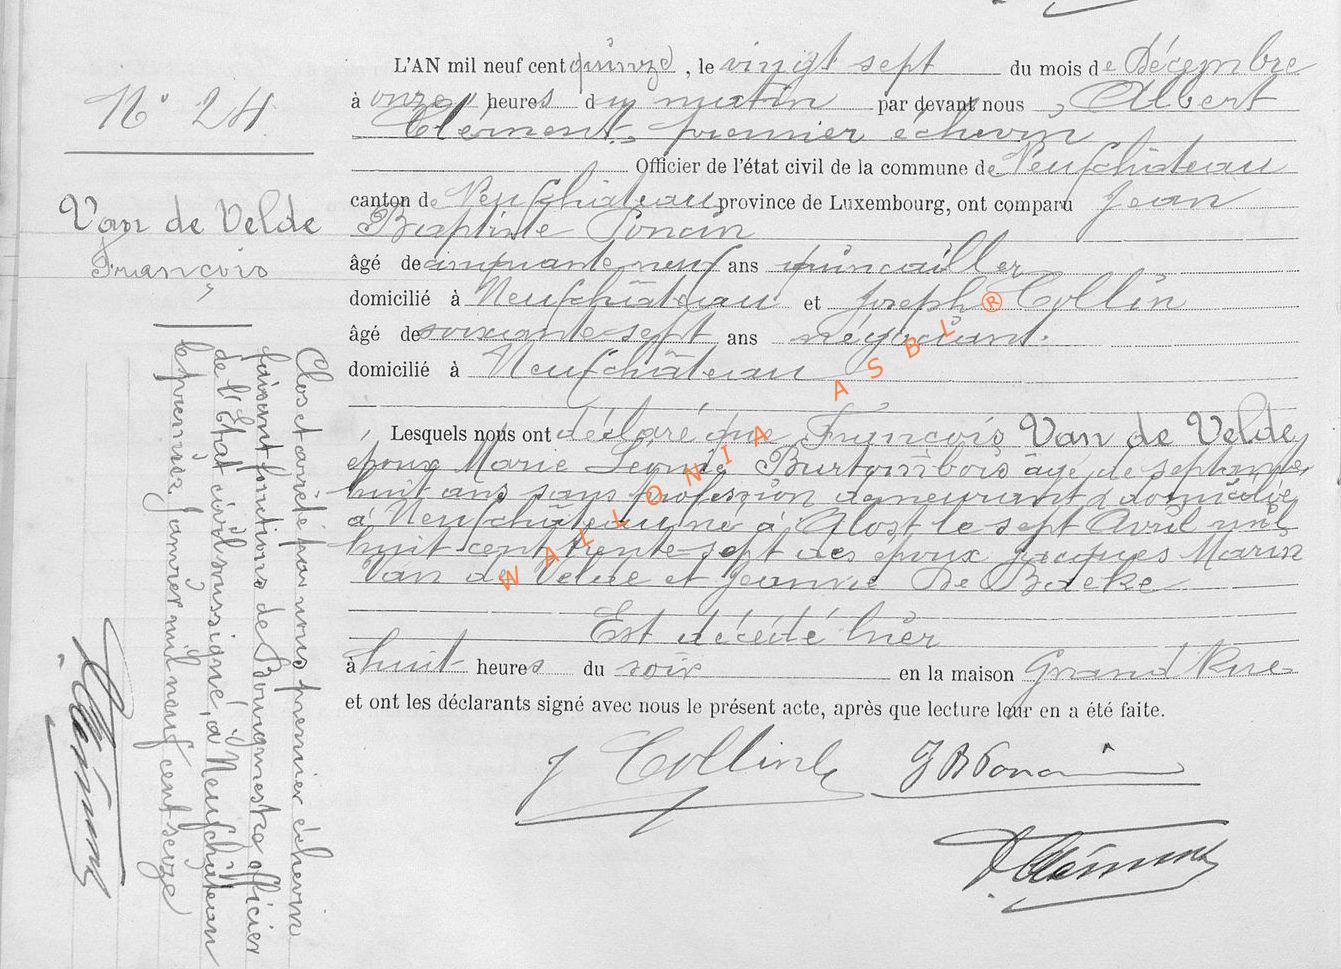 N° 24
Van de Velde
François
L'AN mil neuf cent quinze, le vingt sept du mois de Décembre
à onze heures du matin par devant nous, Albert
Clément, premier échevin
Officier de l'état civil de la commune de Neufchâteau
canton de Neufchâteau province de Luxembourg, ont comparu Jean
Baptiste Poncin
âgé de cinquante neuf ans quincailler
domicilié à Neufchâteau et Joseph Collin
âgé de soixante-sept ans négociant.
domicilié à Neufchâteau
Lesquels nous ont déclaré que François Van de Velde
époux Marie Burtombois âgé de septante
huit ans sans profession demeurant & domicilié
à Neufchâteau né à Alost le sept Avril mil
huit cent trente-sept des époux Jacques Marin
Van de Velde et Jeanne De Backe
Est décédé hier
à huit heures du soir en la maison Grand'Rue
et ont les déclarants signé avec nous le présent acte, après que lecture leur en a été faite.
J Collin JB Poncin
A Clément
Clos et arrêté par nous premier échevin
faisant fonctions de Bourgmestre officier
de l'Etat civil soussigné, à Neufchâteau
le premier janvier mil neuf cent seize
A Clément
WALLONIA ASBL ®